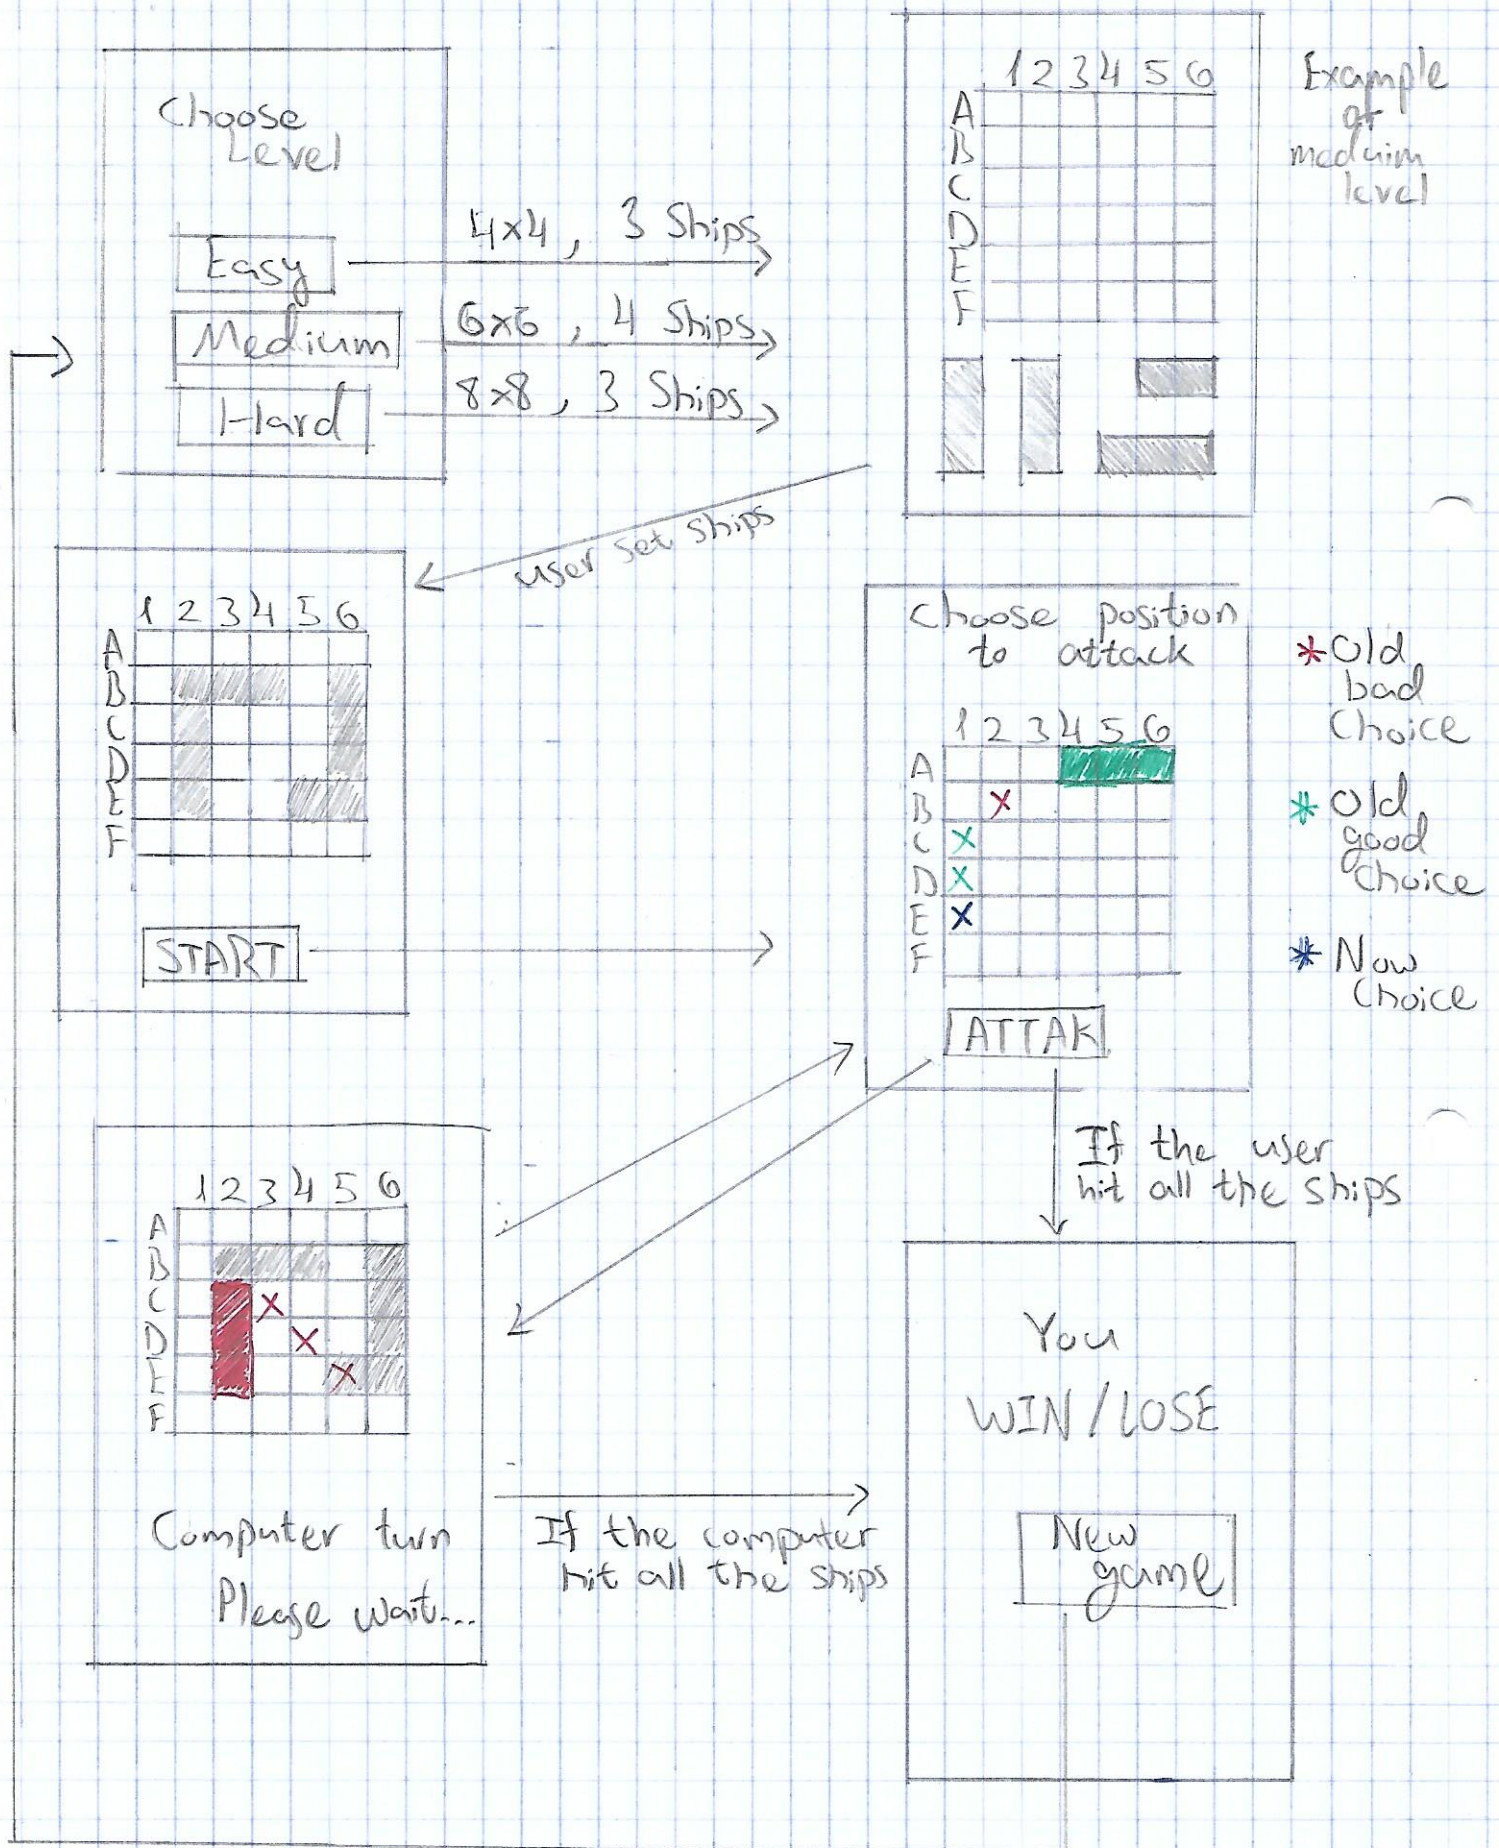 Choose
Level
Easy
Medium
Hard
4x4, 3 Ships
6x6, 4 Ships
8x8, 3 Ships
1 2 3 4 5 6
A
B
C
D
E
F
Example
of
meduim
level
user set ships
1 2 3 4 5 6
A
B
C
D
E
F
START
Choose position
to attack
1 2 3 4 5 6
A
B
C
D
E
F
ATTAK
* Old
bad
Choice
* Old
good
Choice
* Now
Choice
If the user
hit all the ships
1 2 3 4 5 6
A
B
C
D
E
F
Computer turn
Please wait...
If the computer
hit all the ships
You
WIN/LOSE
New
game